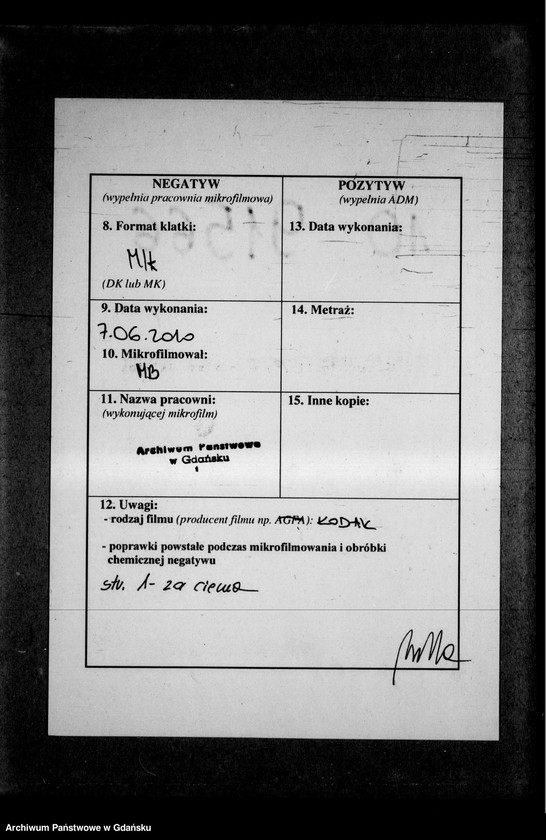 NEGATYW
(wypełnia pracownia mikrofilmowa)
8. Format klatki:
MK
(DK lub MK)
9. Data wykonania:
7.06.2010
10. Mikrofilmował:
MB
11. Nazwa pracowni:
(wykonującej mikrofilm)
Archiwum Państwowe
w Gdańsku
1
POZYTYW
(wypełnia ADM)
13. Data wykonania:
14. Metraż:
15. Inne kopie:
12. Uwagi:
- rodzaj filmu (producent filmu np. AGFA): KODAK
- poprawki powstałe podczas mikrofilmowania i obróbki
chemicznej negatywu
str. 1- za ciemna
Archiwum Państwowe w Gdańsku